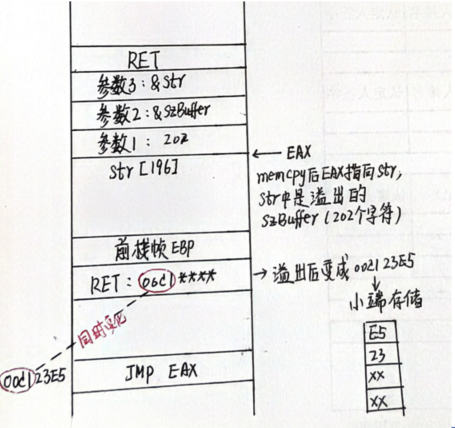 RET
参数3：&Str
参数2：&SzBuffer
参数1：202
str[196]
EAX
memcpy后EAX指向str，
str中是溢出的
SzBuffer（202个字符）
前栈帧EBP
RET：00d1****
溢出后变成00d123E5
小端存储
同时变化
E5
23
XX
XX
00d123E5
JMP EAX